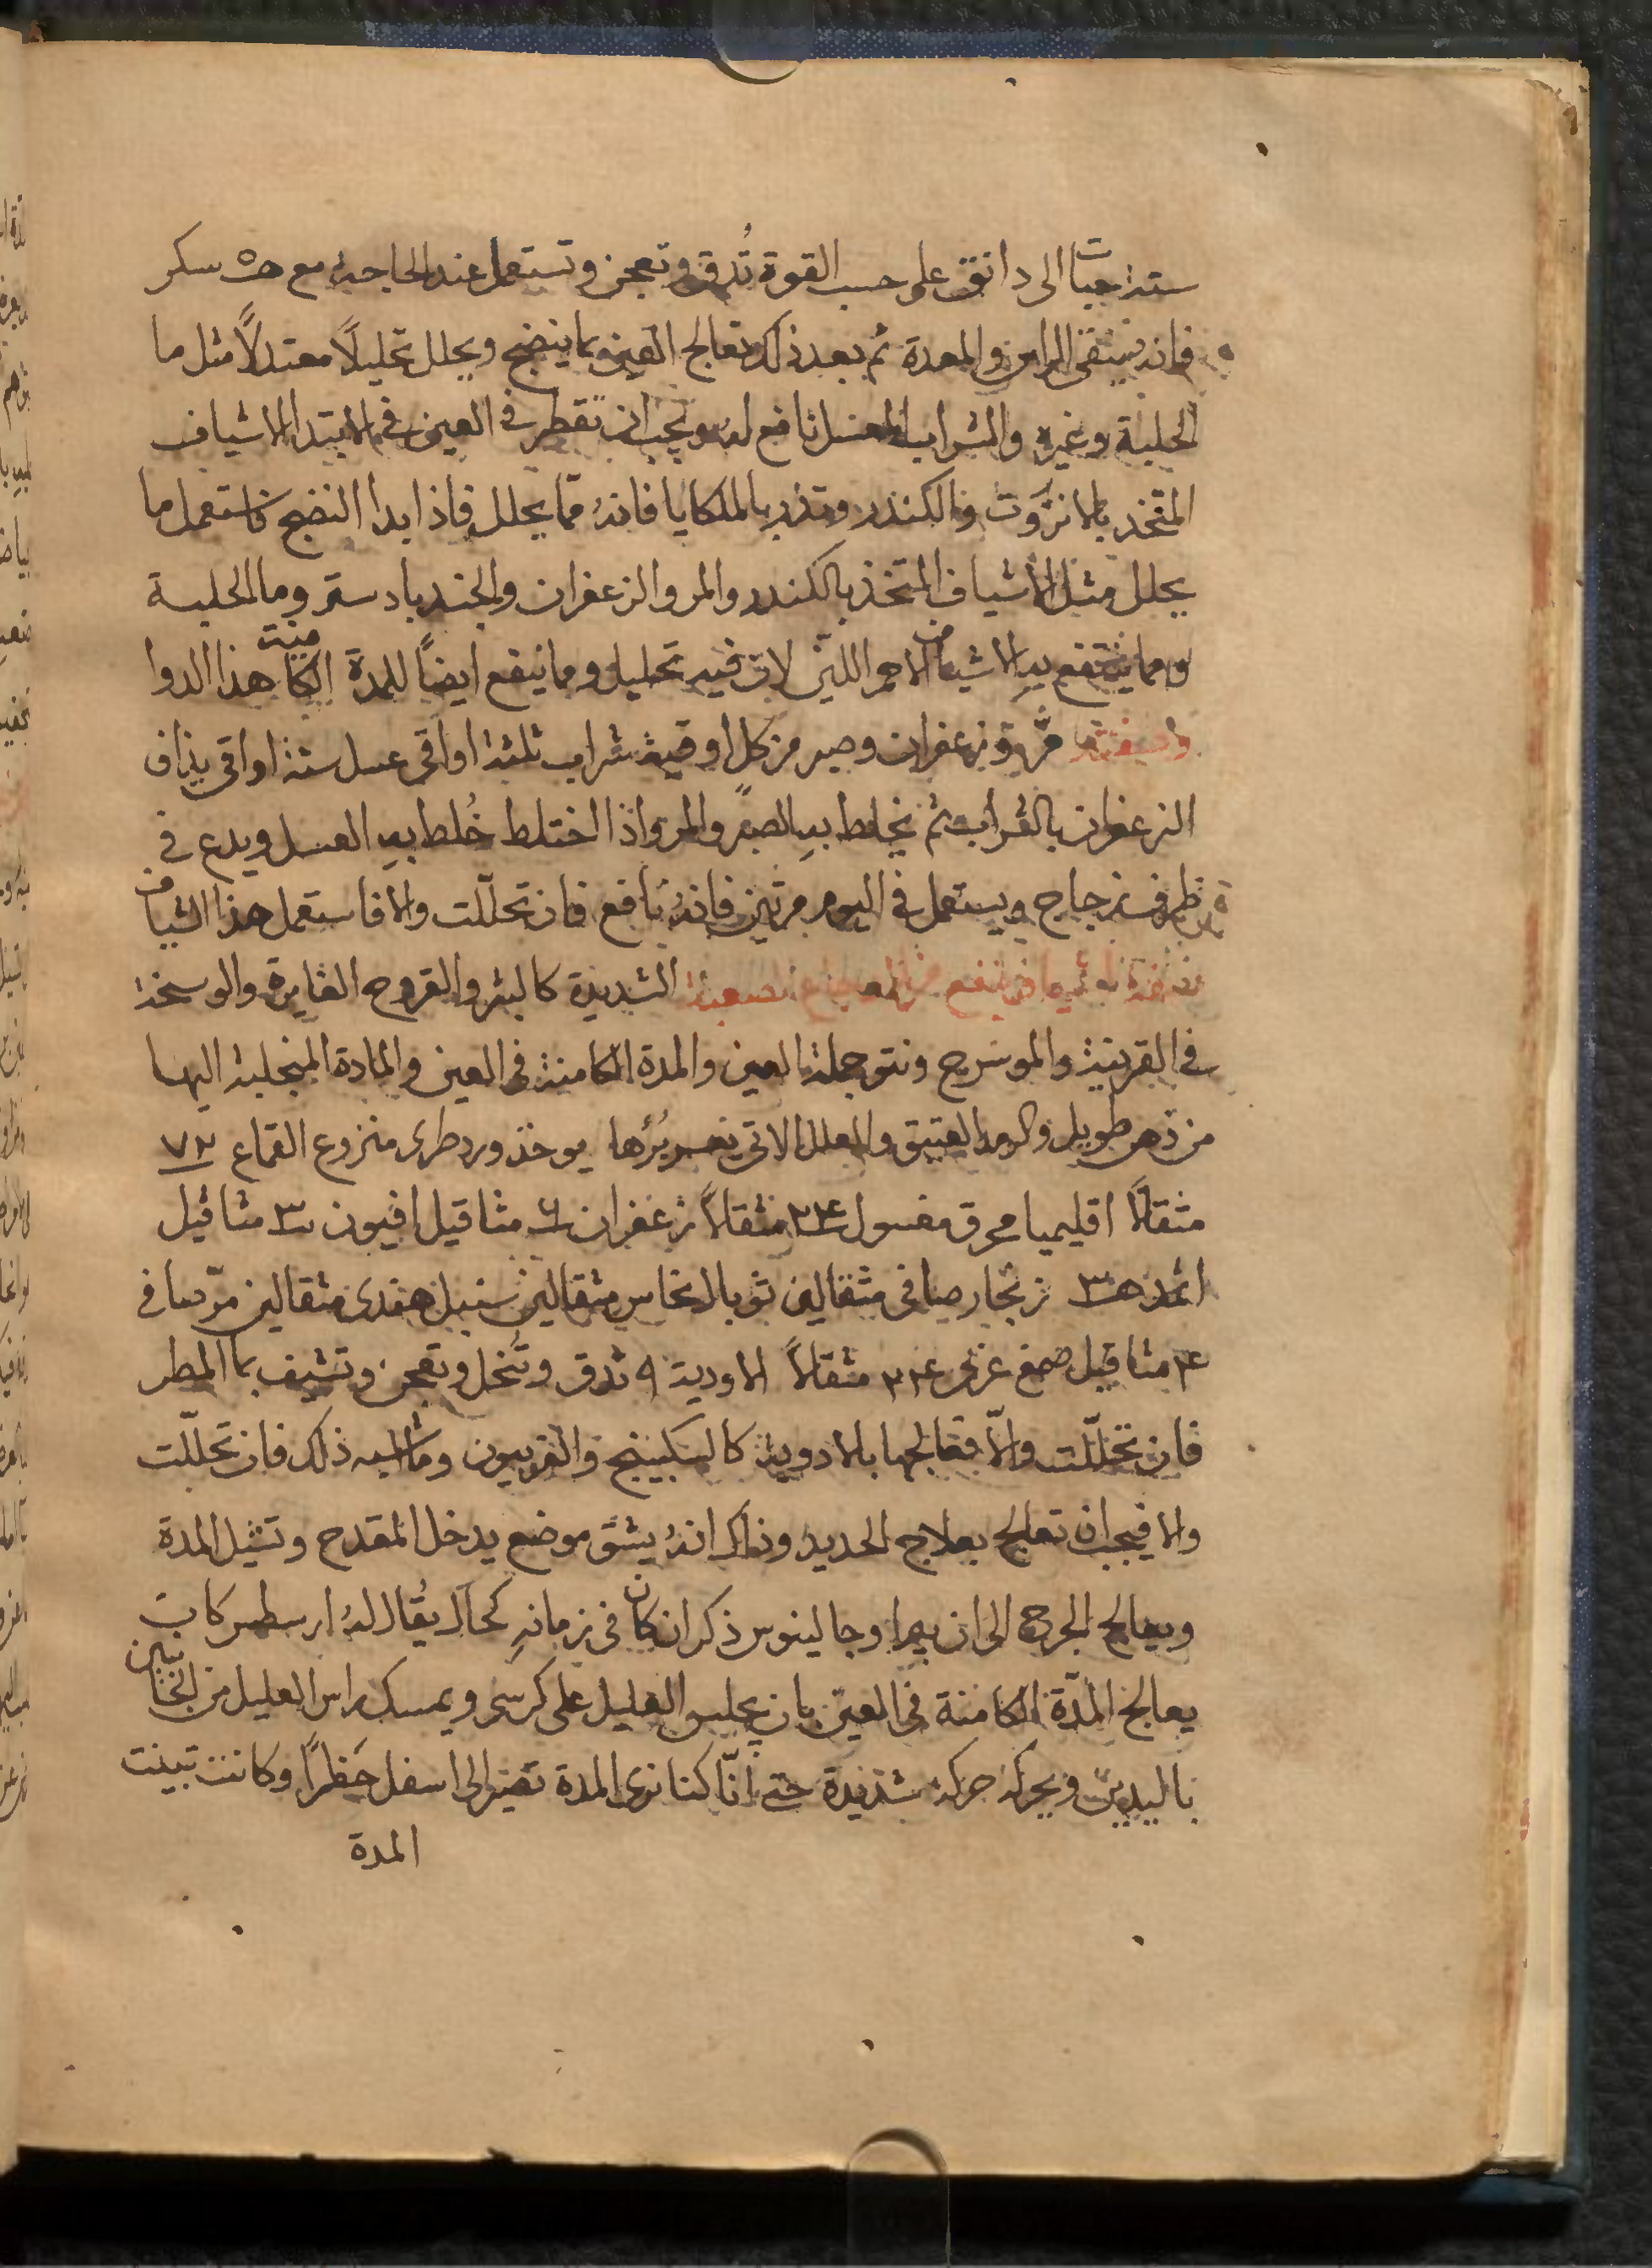 ستة حبات الى دانق على حسب القوة تُدق وتعجن وتستعمل عند الحاجة مع سكر
فانه ينقى الراس والمعدة ثم بعد ذلك تعالج العين بما ينضج ويحلل تحليلاً معتدلاً مثل ما
الحلبة وغيره والشراب المعسل نافع له ويجب ان تقطر فى العين فى الابتدا الاشياف
المتخذ بالانزروت والكندر وتذر بالملكايا فانهُ مما يحلل فاذا بدا النضج فاستعمل ما
يحلل مثل الاشياف المتخذ بالكندر والمر والزعفران والجندبادستر وما الحلبة
ومما ينتفع به الاشياف الاحمر اللين لان فيه تحليل ومما ينفع ايضاً للمدة الكامنة هذا الدوا
وصفته مر وزعفران وصبر من كل اوقية شراب ثلثة اواقى عسل ستة اواقى يذاف
الزعفران بالشراب ثم يخلط به الصبر والمر واذا اختلط خُلط به العسل ويدع فى
ظرف زجاج ويستعمل فى اليوم مرتين فانهُ نافع فان تحلّلت والا فاستعمل هذا الشياف
الشديدة كالبثر والقروح الغايرة والوسخة
فى القرنية والموسرج ونتو جملة العين والمدة الكامنة فى العين والمادة المنجلبة اليها
من دهر طويل والرمد العتيق والعلل الاتى يعسر بُرُها يوخذ ورد طرى منزوع القماع ٧٢
مثقالاً اقليميا محرق مغسول ٢٤ مثقالاً زعفران ٦ مثاقيل افيون ٣ مثاقيل
اثمد ٣ زنجار صافى مثقالين توبال نحاس مثقالين سنبل هندى مثقالين مرّ صافى
٤ مثاقيل صمغ عربى ٢٤ مثقالاً الادوية ٩ تدق وتُنخل وتعجن وتشيف بما المطر
فان تحلّلت والاّ فعالجها بالادوية كالسكبينج والفربيون وما اشبه ذلك فان تحلّلت
والا فيجب ان تعالج بعلاج الحديد وذلك انهُ يشق موضع يدخل المقدح وتشيل المدة
ويعالج الجرح الى ان يبرا وجالينوس ذكر ان كان فى زمانه كحال يُقال لهُ ارسطس كان
يعالج المدّة الكامنة فى العين بان يجلس العليل على كرسى ويمسك راس العليل من الجانبين
باليدين ويحركه حركة شديدة حتى انّا كنا نرى المدة تصير الى اسفل وكانت تبينت
المدة